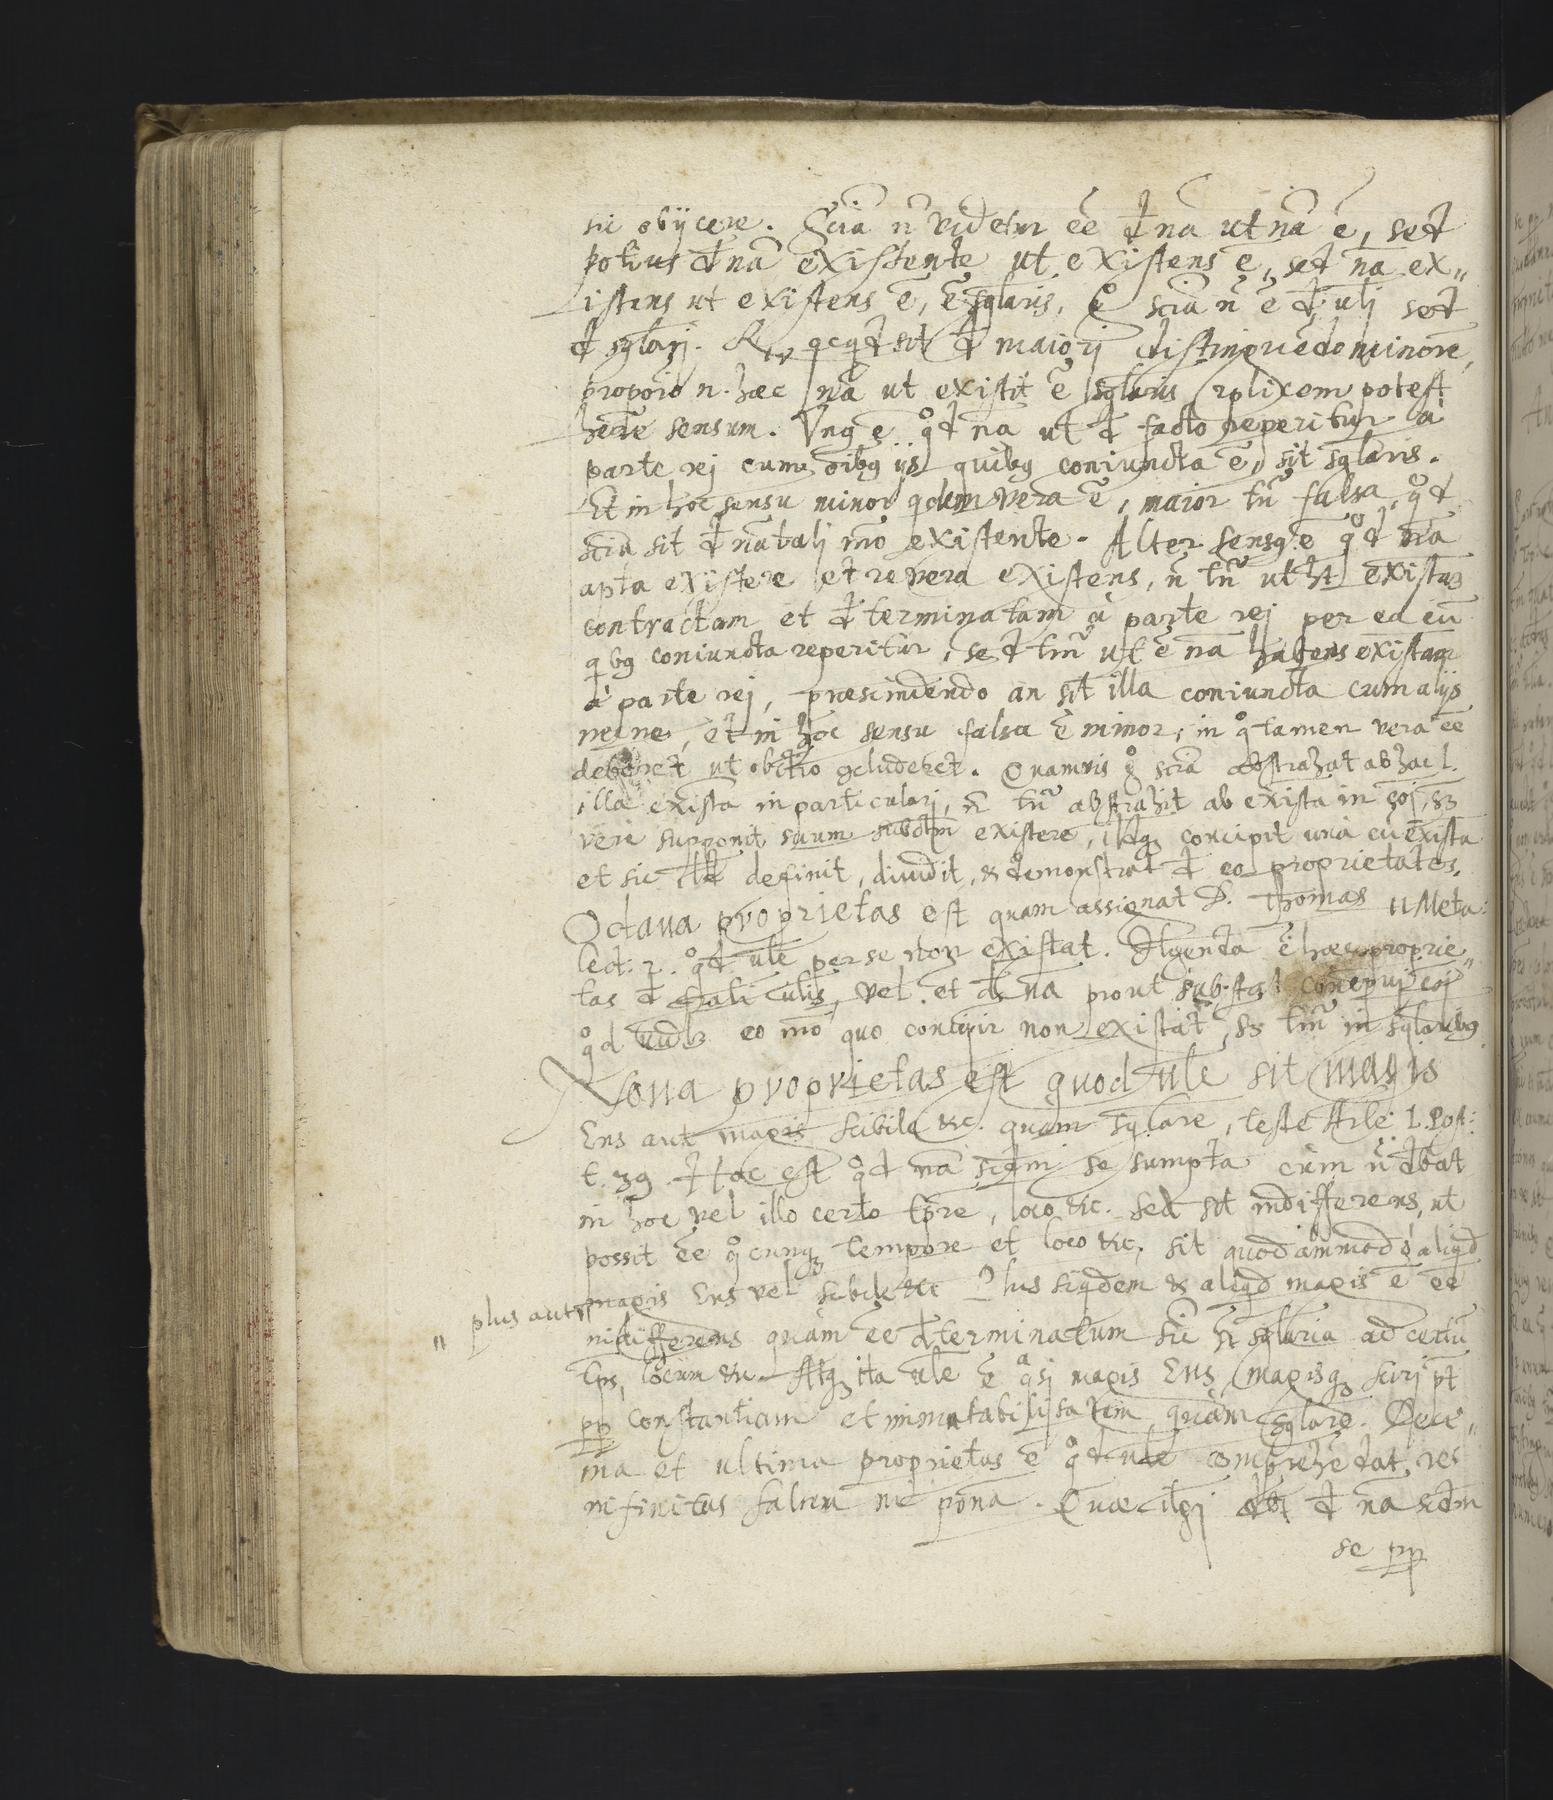 sic obijcere. Scia n̄ videtur ēē đ nā ut nā ē, sed
potius đ nā existente ut existens ē, sed nā ex„
istens ut existens ē, ē sglaris, scia n̄ ē đ ulj sed
đ sglarj. R. qcqđ sit đ maiorj distinguēdo minorē,
propōio n. hæc nā ut existit ē sglaris dplicem potest
hēre sensum. Vnq ē qđ nā ut đ facto reperitur à
parte rej cum oībq ijs quibq coniuncta ē, sit sglaris.
Et in hoc sensu minor qdem vera ē, maior tn̄ falsa, qđ
scia sit đ nā talj mō existente. Alter sensq ē qđ nā
apta existere et revera existens, n̄ tn̄ ut ht existaz
contractam et đterminatam à parte rej per ea cū
qbq coniuncta reperitur, sed tm̄ ut ē nā habens existam
à parte rej, præscindendo an sit illa coniuncta cum alijs
nec ne, et in hoc sensu falsa ē minor, in q tamen vera ēē
deberet ut obctio gcluderet. Quamvis g scia abstrahat ab hac l.
illa exista in particularj, n̄ tn̄ abstrahit ab exista in coj, sz
vere supponit suum subctm existere, concipit unà cū exista
et sic definit, diuidit, & đmonstrat đ eo proprietates.
Octaua proprietas est quam assignat D. Thomas 11 Meta:
lect: 2. qđ ule per se non existat. Jtgenda ē hæc proprie„
tas đ ulis, vel et đ nā prout sub-stat coj
qd eo mō quo concipir non existat, sz tm̄ in sglaribq
Nona proprietas est quod ule sit magis
Ens aut magis scibile &c. quam sglare, teste Arle 1. Post:
t. 39. Hoc est qđ nā scđm se sumpta cùm n̄ đbat
in hoc vel illo certo tpre, loco &c. sed sit indifferens, ut
possit ēē qcunq tempore et loco &c. sit quodammodo aliqd
magis Ens vel scibile &c Plus siqdem & aliqd magis ē ēē
„ plus aut„
indifferens quàm ēē đterminatum sic ht sglaria ad certū
tps, locum &c. Atq ita ule ē qsj magis Ens magisq scirj pt
pp constantiam et immutabilitatem quàm sglare. Deci„
ma et ultima proprietas ē qđ ule comprehēdat res
infinitas saltem in pōna. Quæ itgj đbt đ nā scđm
se pp